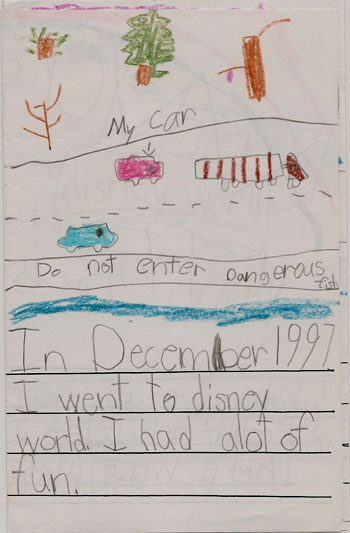 My car
Do not enter Dangerous
fish
In December 1997
I went to disney
world. I had alot of
fun.